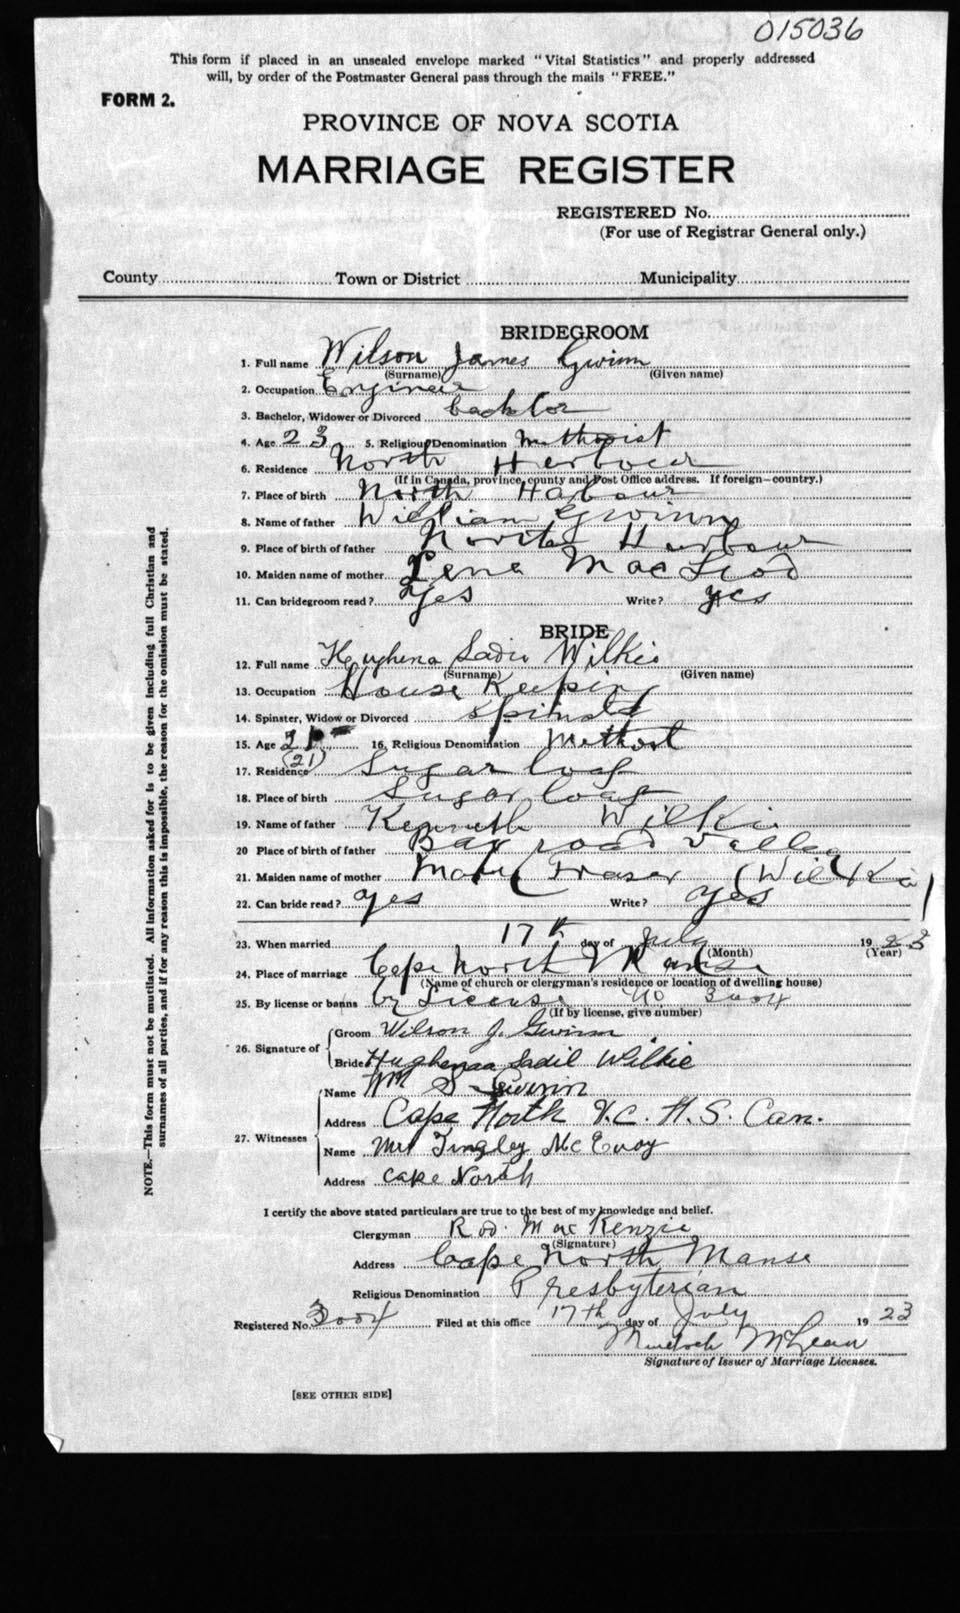 015036
This form if placed in an unsealed envelope marked "Vital Statistics" and properly addressed
will, by order of the Postmaster General pass through the mails "FREE."
FORM 2.
PROVINCE OF NOVA SCOTIA
MARRIAGE REGISTER
REGISTERED No.
(For use of Registrar General only.)
County Town or District Municipality
BRIDEGROOM
1. Full name Wilson James Gwinn
(Surname) (Given name)
2. Occupation Engineer
3. Bachelor, Widower or Divorced bachlor
4. Age 23 5. Religious Denomination Methodist
6. Residence North Harbour
(If in Canada, province, county and Post Office address. If foreign—country.)
7. Place of birth North Habour
8. Name of father William Gwinn
9. Place of birth of father North Harbour
10. Maiden name of mother Lena MacLeod
11. Can bridegroom read? yes Write? yes
BRIDE
12. Full name Hughena Sadie Wilkie
(Surname) (Given name)
13. Occupation House Keeping
14. Spinster, Widow or Divorced
15. Age 21 16. Religious Denomination
(21)
17. Residence Sugar loaf
18. Place of birth Sugar loaf
19. Name of father Kenneth Wilkie
20 Place of birth of father Bay road Valley
21. Maiden name of mother Mary Fraser (Wilkie)
22. Can bride read? yes Write? yes
23. When married 17th day of July 1923
(Month) (Year)
24. Place of marriage Cape North Manse
(Name of church or clergyman's residence or location of dwelling house)
25. By license or banns by License No 3004
(If by license, give number)
26. Signature of
Groom Wilson J. Gwinn
Bride Hughenaa Sadil Wilkie
27. Witnesses
Name Wm S Gwinn
Address Cape North V.C. N.S. Can.
Name Mrs Tingley McEvoy
Address Cape North
I certify the above stated particulars are true to the best of my knowledge and belief.
Clergyman Rod. MacKenzie
(Signature)
Address Cape North Manse
Religious Denomination Presbyterian
Registered No. 3004 Filed at this office 17th day of July 1923
Murdoch McLean
Signature of Issuer of Marriage Licenses.
[SEE OTHER SIDE]
NOTE.—This form must not be mutilated. All information asked for is to be given including full Christian and
surnames of all parties, and if for any reason this is impossible, the reason for the omission must be stated.